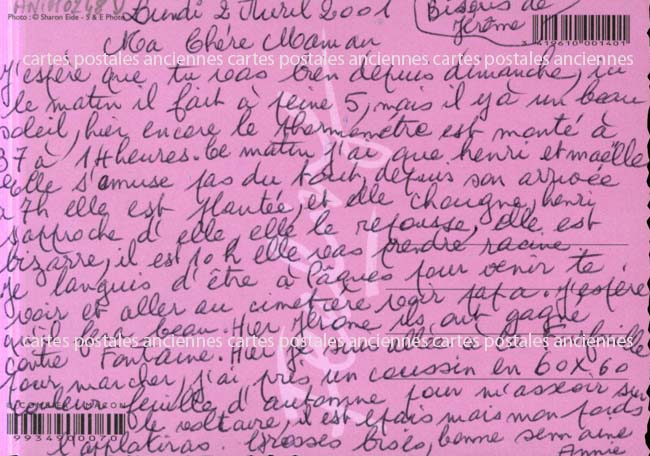 ANIM0248 V
Photo : © Sharon Eide - S & E Photo
Lundi 2 Avril 2001
Bisous de
Jérôme
3 419610 001401
Ma Chère Maman
cartes postales anciennes cartes postales anciennes cartes postales anciennes
J'espère que tu vas bien depuis dimanche, ici
le matin il fait à peine 5, mais il y a un beau
soleil, hier encore le thermomètre est monté à
37 à 14 heures. Ce matin j'ai que henri et maëlle
elle s'amuse pas du tout, depuis son arrivée
à 7h elle est plantée, et elle chougne, henri
s'approche d'elle elle le repousse, elle est
bizarre, il est 10h elle vas prendre racine
Je languis d'être à Pâques pour venir te
voir et aller au cimetière voir papa. J'espère
qu'il fera beau. Hier Jérome ils ont gagné
cartes postales anciennes cartes postales anciennes cartes postales anciennes
contre Fontaine. Hier je suis allée à
pour marcher, j'ai pris un coussin en 60x60
couleur feuille d'automne pour m'asseoir sur
le voltaire, il est épais mais mon poids
l'applatiras. Grosses bises, bonne semaine
Annie
9 934900070